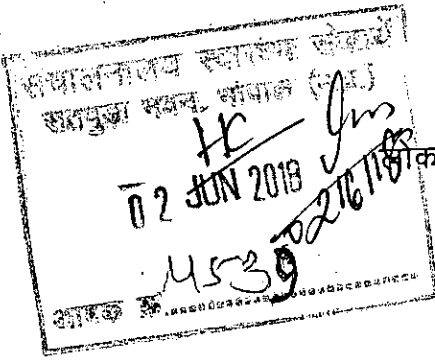 संचालनालय स्वास्थ्य सेवायें
सतपुड़ा भवन, भोपाल (म.प्र.)
02 JUN 2018
02/6/18
4539
आवक क्र.